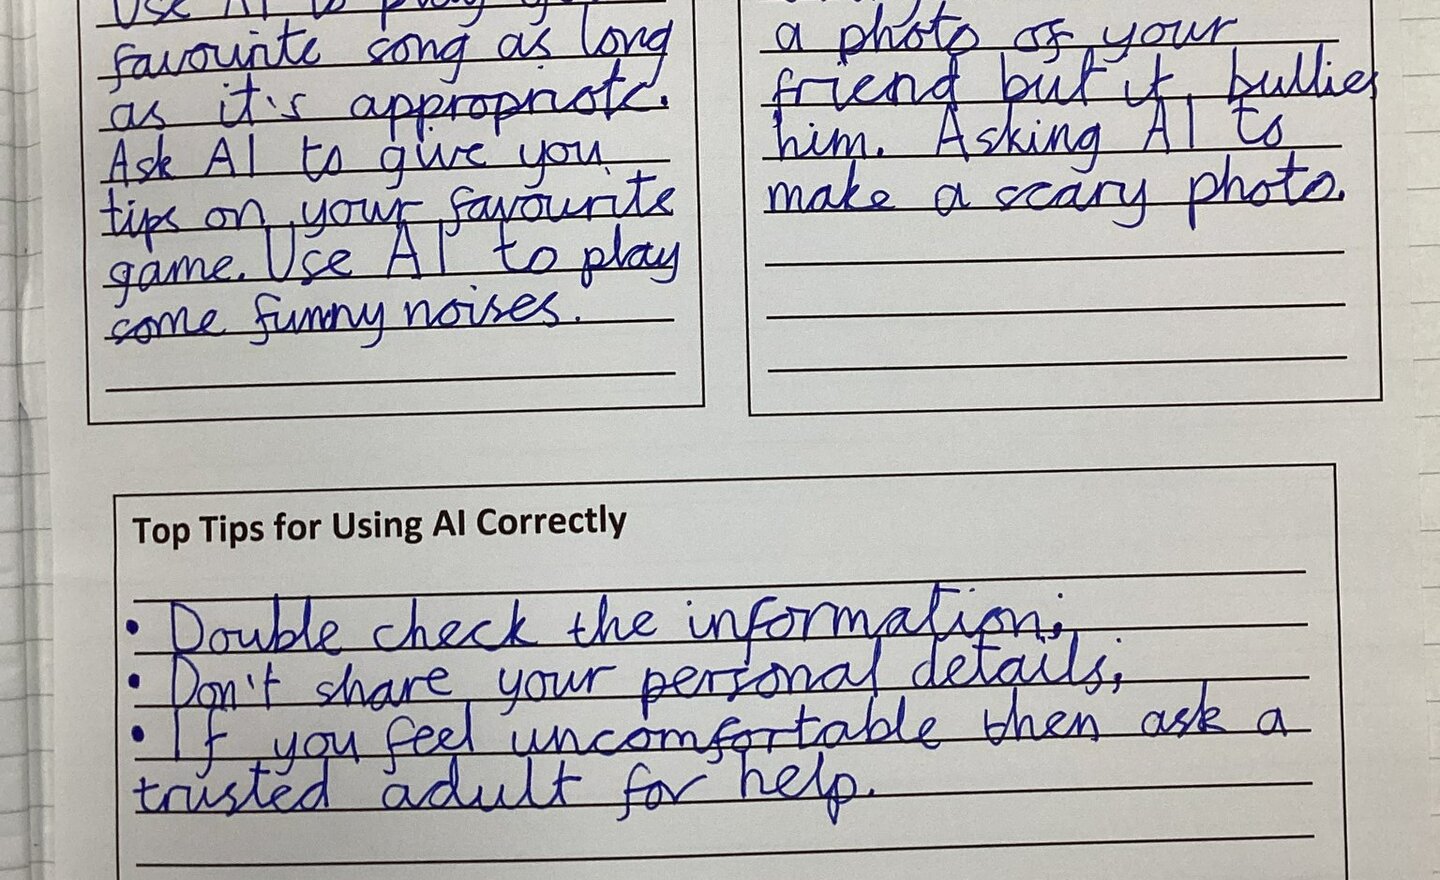 Use AI to play your
favourite song as long
as it's appropriate.
Ask AI to give you
tips on your favourite
game. Use AI to play
some funny noises.
a photo of your
friend but it bullies
him. Asking AI to
make a scary photo.
Top Tips for Using AI Correctly
• Double check the information;
• Don't share your personal details;
• If you feel uncomfortable then ask a
trusted adult for help.